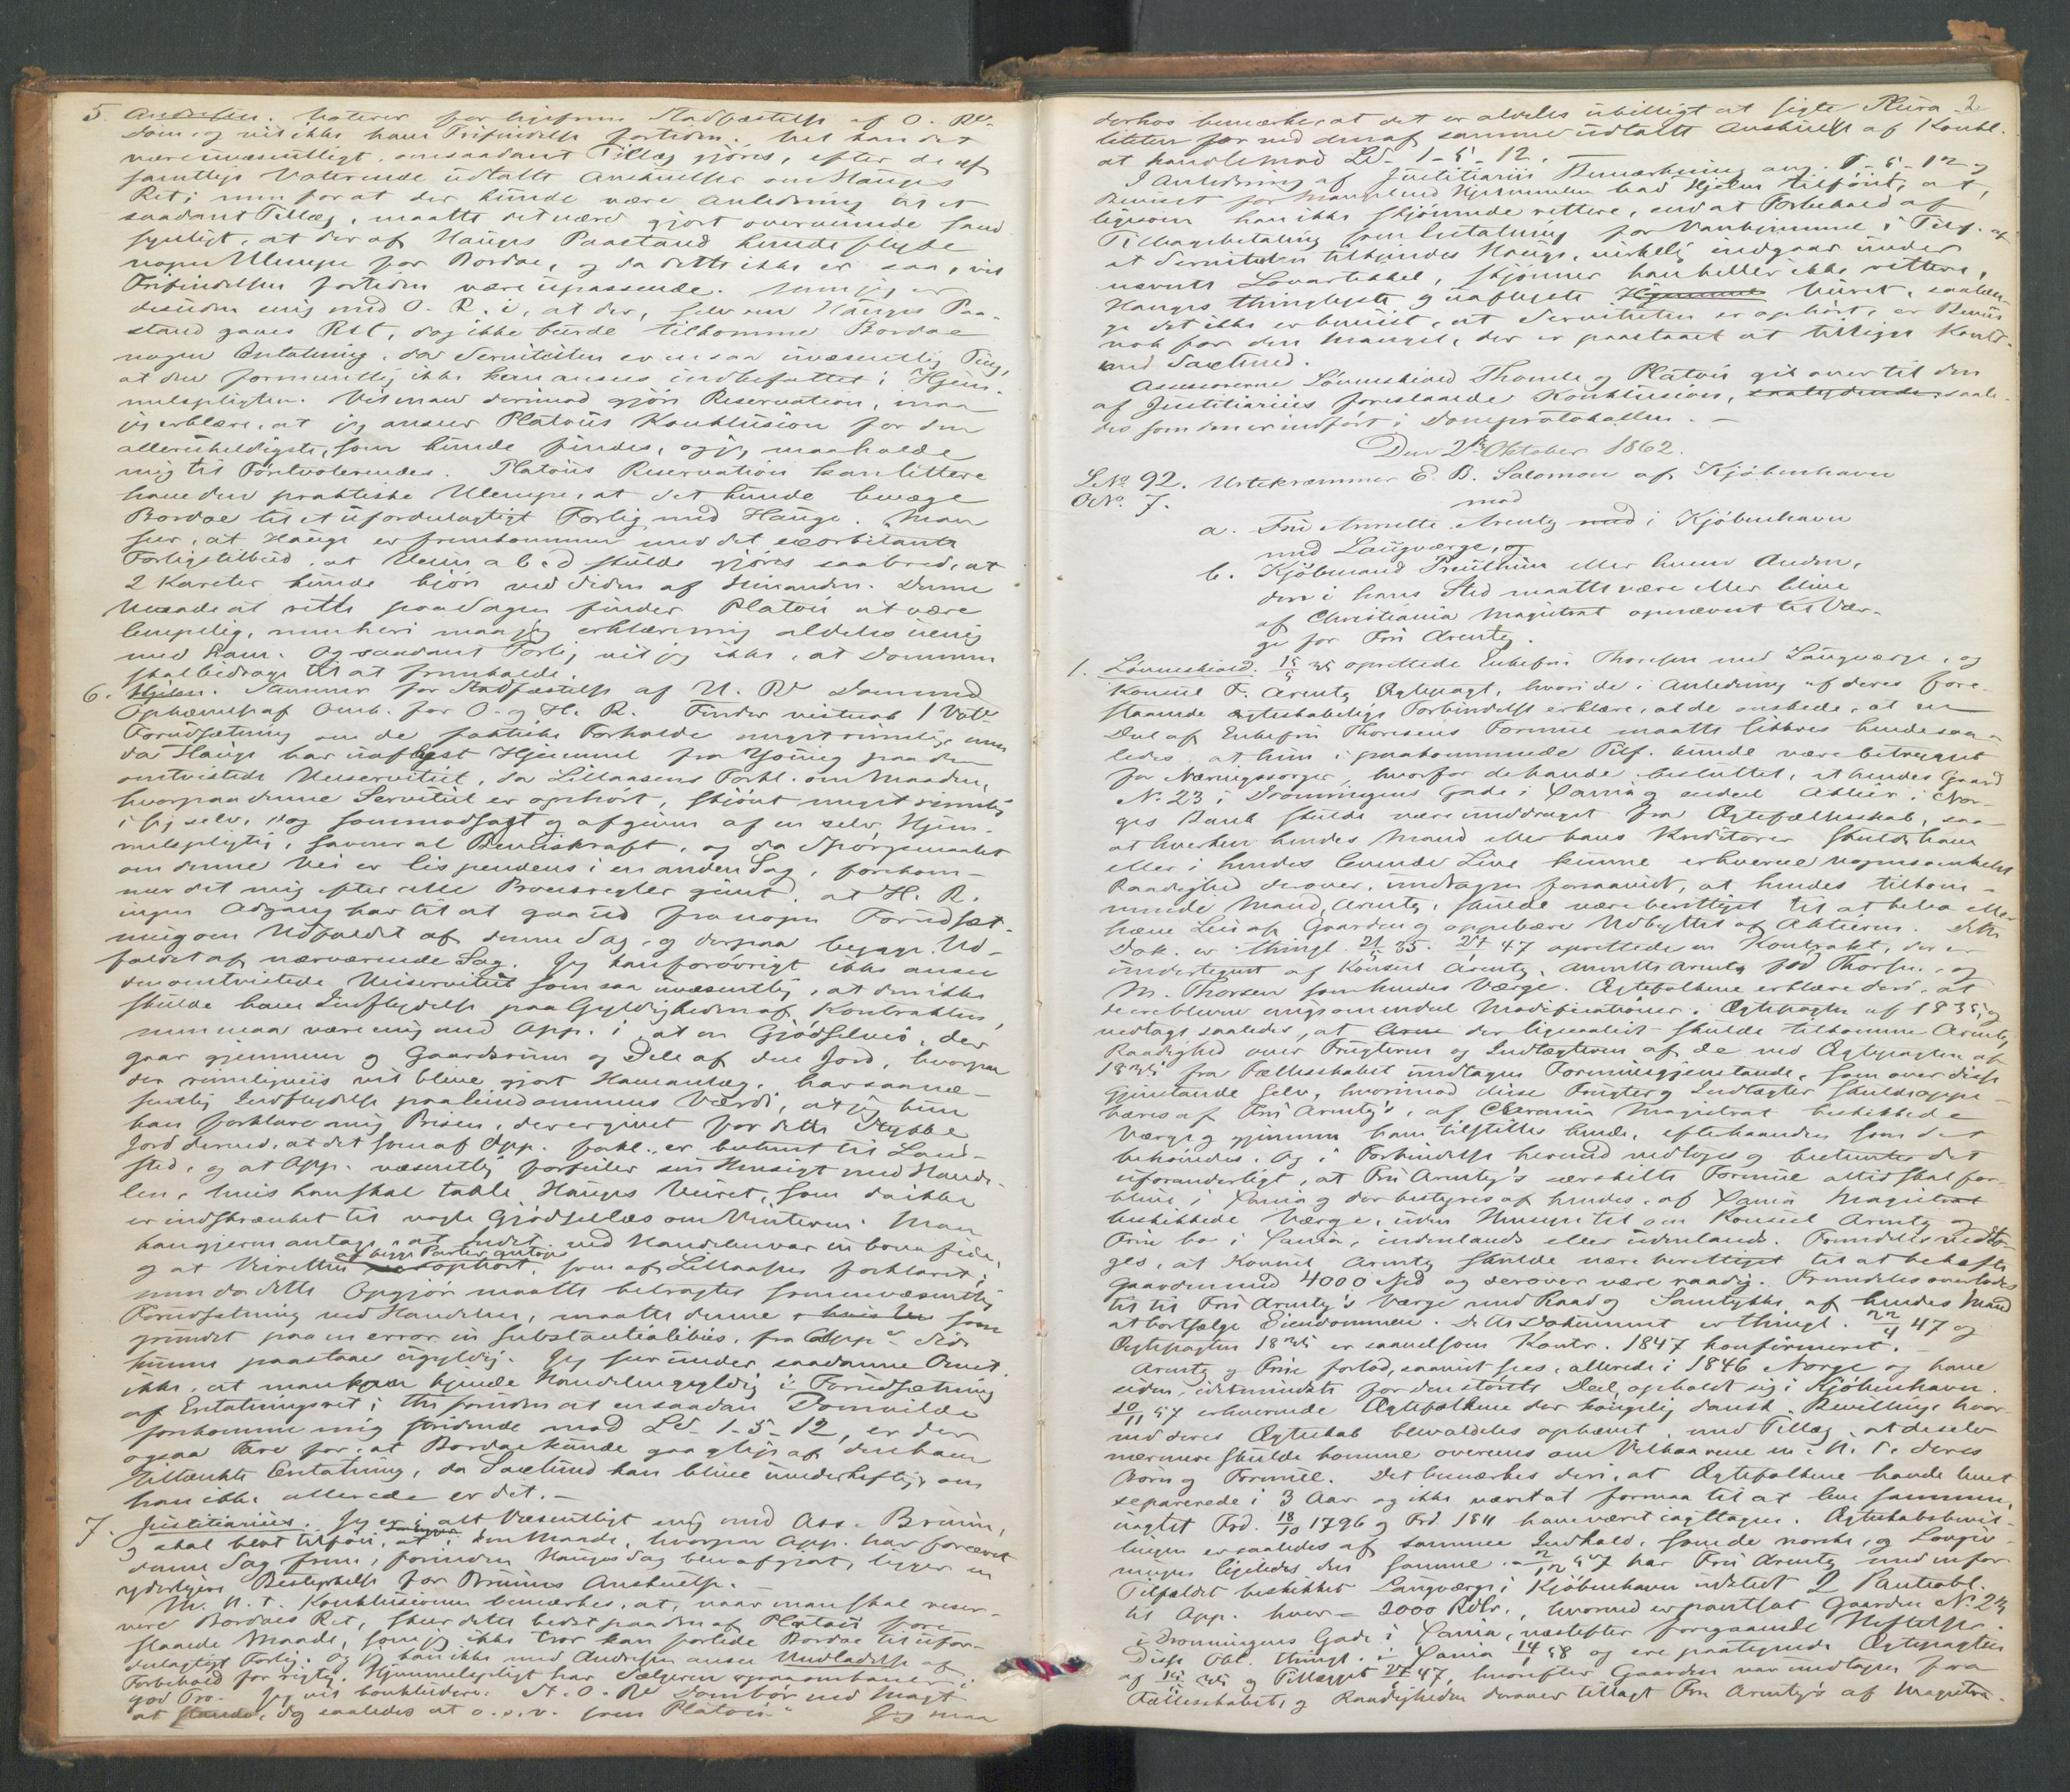 5. Andresen. Voterer for ligefrem Stadfæstelse af O. Rs
Dom og vil ikke have Frifindelse fortiden. Vel kan det
være uvæsentligt, om saadant Tillæg gjøres, efter de af
samtlige Voterende udtalte Anskuelser om Hauges
Ret; men for at der kunde være Anledning til et
saadant Tillæg, maatte det være gjort overveiende sand-
synligt, at der af Hauges Paastand kunde flyde
nogen Ulempe for Bordoe, og da dette ikke er saa, vil
Frifindelsen fortiden være upassende. Som jeg er
desuden enig med O. R. i, at der, selv om Hauges Paa-
stand gaves Ret, dog ikke burde tilkomme Bordoe
nogen Erstatning, da Servituten er en saa uvæsentlig Ting,
at den formentlig ikke kan ansees indbefattet i Hjem-
melspligten. Vil man derimod gjøre Reservation, maa
jeg erklære, at jeg anseer Platous Konklusion for den
alleruheldigste, som kunde findes, og jeg maa holde
mig til Førstvoterendes. Platous Reservation kan lettere
have den praktiske Ulempe, at det kunde bevæge
Bordoe til et ufordelagtigt Forlig med Hauge. Man
seer, at Hauge er fremkommen med det exorbitante
Forligstilbud, at Veien a b c d skulde gjøres saa bred, at
2 Kareter kunde kjøre ved Siden af hinanden. Denne
Maade at rette paa Sagen finder Platou at være
lempelig, men heri maa jeg erklære mig aldeles uenig
med ham. Og saadant Forlig vil jeg ikke, at Dommen
skal bidrage til at fremkalde.
6. Hjelm. Stemmer for Stadfæstelse af U. Rs Dom med
Ophævelse af Omk. for O. og H. R. Finder vistnok 1 Vots
Forudsætning om de faktiske Forholde meget rimelig, men
da Hauge har uaflyst Hjemmel fra Young paa den
omtvistede Veiservitut, da Lillaasens Forkl. om Maaden,
hvorpaa denne Servitut er ophørt, skjønt meget rimelig
i sig selv, dog som modsagt og afgiven af en selv Hjem-
melspligtig, savner al Beviiskraft, og da Spørgsmaalet
om denne Vei er lis pendens i en anden Sag, forekom-
mer det mig efter alle Procesregler givet, at H. R.
ingen Adgang har til at gaa ud fra nogen Forudsæt-
ning om Udfaldet af denne Sag, og derpaa bygge Ud-
faldet af nærværende Sag. Jeg kan forøvrigt ikke ansee
den omtvistede Veiservitut som saa uvæsentlig, at den ikke
skulde have Indflydelse paa Gyldigheden af Kontrakten,
men maa være enig med App. i, at en Gjødselvei, der
gaar gjennem og Gaardsrum og Dele af den Jord, hvorpaa
der rimeligviis vil blive gjort Haveanlæg, har saa væ-
sentlig Indflydelse paa Eiendommens Værdi, at jeg kun
kan forklare mig Prisen, der er givet for dette Stykke
Jord derved, at det som af App. forkl., er bestemt til Land-
sted, og at App. væsentlig forfeiler sin Hensigt med Hande-
len, hvis han skal taale Hauges Veiret, som da ikke
er indskrænket til nogle Gjødsellæs om Vinteren. Man
kan gjerne antage, at Indst. ved Handelen var in bona fide,
og at begge Parter antoge
Veiretten ophørt, som af Lillaasen forklaret;
men da dette Opgjør maatte betragtes som en væsentlig
Forudsætning ved Handelen, maatte denne som
grundet paa en error in substantialibus, fra App.s Side
kunne paastaaes ugyldig. Jeg seer under saadanne Omst.
ikke, at man kan kjende Handelen gyldig i Forudsætning
af Erstatningsret; thi foruden at en saadan Dom vilde
forekomme mig stridende mod Lds 1-5-12, er der
ogsaa Fare for, at Bordoe kunde gaa glip af den ham
tillænkte Erstatning, da Saxlund kan blive uvederheftig, om
han ikke allerede er det. –
7. Justitiarius. Jeg er i alt Væsentligt enig med Ass. Bruun,
og skal blot tilføie, at i den Maade, hvorpaa App. har forceret
denne Sag frem, forinden Hauges Sag blev afgjort, ligger en
yderligere Bestyrkelse for Bruuns Anskuelse.
M. H. t. Konklusionen bemærkes, at, naar man skal reser-
vere Bordoes Ret, skeer dette bedst paa den af Platou fore-
slaaede Maade, som jeg ikke troer kan forlede Bordoe til ufor-
delagtigt Forlig. Og jeg kan ikke med Andresen ansee Undladelse af
Forbehold for rigtig. Hjemmelspligt har Sælgeren ogsaa omhandlet i
god Tro. Jeg vil konkludere: St. O. Rs Dom bør ved Magt
at stande, dog saaledes at o. s. v. som Platou.
Jeg maa
2
derhos bemærke, at det er aldeles ubilligt at sigte Plura-
liteten for ved den af samme udtalte Anskuelse af Kontr.
at handle mod Lds 1-5-12.
I Anledning af Justitiarii Bemærkning ang. 1-5-12 og
Beviset for Mangel ved Hjemmelen bad Hjelm tilført, at,
ligesom han ikke skjønnede rettere, end at Forbehold af
Tilbagebetaling som Erstatning for Vanhjemmel i Tilf. af
at Servituten tilkjendes Hauge, virkelig indgaar under
nævnte Lovartikkel, skjønner han heller ikke rettere,
Hauges thinglyste og uaflyste Veiret, saalæn-
ge det ikke er bevist, at Servituten er ophørt, er Beviis
nok for den Mangel, der er paastaaet at tillægge Kontr.
med Saxlund.
Assessorerne Løvenskiold, Thomle og Platou gik over til den
af Justitiarius foreslaaede Konklusion, saale-
des som den er indført i Domsprotokollen. –
Den 2den Oktober 1862.
L.No 92. Urtekræmmer E. B. Salomon af Kjøbenhavn
O.No 7.
mod
a. Fru Annette Arentz i Kjøbenhavn
med Laugværge, og
b. Kjøbmand Preuthun eller hvem Anden,
der i hans Sted maatte være eller blive
af Christiania Magistrat opnævnt til Vær-
ge for Fru Arentz.
1. Løvenskiold. 15/5 35 oprettede Enkefru Thoresen med Laugværge, og
Konsul F. Arentz Ægtepagt, hvori de i Anledning af deres fore-
staaende ægteskabelige Forbindelse erklære, at de ønskede, at en
Deel af Enkefru Thoresens Formue maatte sikkres hende saa-
ledes, at hun i paakommende Tilf. kunde være betrygget
for Næringssorger, hvorfor de havde besluttet, at hendes Gaard
No 23 i Dronningens Gade i Xania og endeel Aktier i Nor-
ges Bank skulde være unddraget fra Ægtefællesskab, saa
at hverken hendes Mand eller hans Kreditorer skulde have
eller i hendes levende Live kunne erhverve nogensomhelst
Raadighed derover, undtagen forsaavidt, at hendes tilkom-
mende Mand, Arentz, skulde være berettiget til at beboe eller
hæve Leie af Gaarden og oppebære Udbyttet af Aktierne. Dette
Dok. er thingl. 21/5 35. 27/1 47 oprettedes en Kontrakt, der er
undertegnet af Konsul Arentz, Annette Arentz fød Thorsen, og
M. Thorsen som hendes Værge. Ægtefolkene erklære deri, at
de ere blevne enige om endeel Modifikationer i Ægtepagten af 1835, og
vedtage saaledes, at der ligesaalidt skulde tilkomme Arentz
Raadighed over Frugterne og Indtægterne af de ved Ægtepagten af
1835 fra Fællesskabet undtagne Formuesgjenstande, som over disse
Gjenstande selv, hvorimod disse Frugter og Indtægter skulde oppe-
bæres af Fru Arentz's, af Chrania Magistrat beskikkede
Værge og gjennem ham tilstilles hende, efterhaanden som det
behøvedes. Og i Forbindelse hermed vedtoges og bestemtes det
uforanderligt, at Fru Arentz's særskilte Formue altid skal for-
blive i Xania og der bestyres af hendes, af Xania Magistrat
beskikkede Værge, uden Hensyn til om Konsul Arentz og
Frue bo i Xania, indenlands eller udenlands. Fremdeles vedto-
ges, at Konsul Arentz skulde være berettiget til at behæfte
Gaarden med 4000 Spd og derover være raadig. Fremdeles overlodes
det til Fru Arentz's Værge med Raad og Samtykke af hendes Mand
at bortsælge Eiendommen. Dette Dokument er thingl. 22/4 47 og
Ægtepagten 1835 er saavelsom Kontr. 1847 konfirmeret. –
Arentz og Frue forlod, saavidt sees, allerede i 1846 Norge og have
siden, idetmindste for den største Deel, opholdt sig i Kjøbenhavn.
10/11 57 erhvervede Ægtefolkene der kongelig dansk Bevilling, hvor-
ved deres Ægteskab blev aldeles ophævet, med Tillæg, at de selv
nærmere skulde komme overeens om Vilkaarene m. H. t. deres
Børn og Formue. Det bemærkes deri, at Ægtefolkene havde levet
separerede i 3 Aar og ikke været at formaa til at leve sammen,
uagtet Frd. 18/10 1796 og Frd. 1811 have været iagttagne. Ægteskabsbevil-
lingen er saaledes af samme Indhold, som de norske, og Lovgiv-
ningen ligeledes den samme. 2/12 57 har Fru Arentz med en for
Tilfældet beskikket Laugværge i Kjøbenhavn udstedt 2 Panteobl.
til App. hver = 2000 Rdlr., hvorved er pantsat Gaarden No 23
i Dronningens Gade i Xania, næstefter foregaaende Heftelser.
Disse Obl. thingl. i Xania 14/1 58 og ere paategnede Ægtepagten
af 15/5 35 og Tillægget 27/1 47, hvorefter Gaarden var undtagen fra
Fællesskabet, og Raadigheden derover tillagt Fru Arentz's af Magistra-